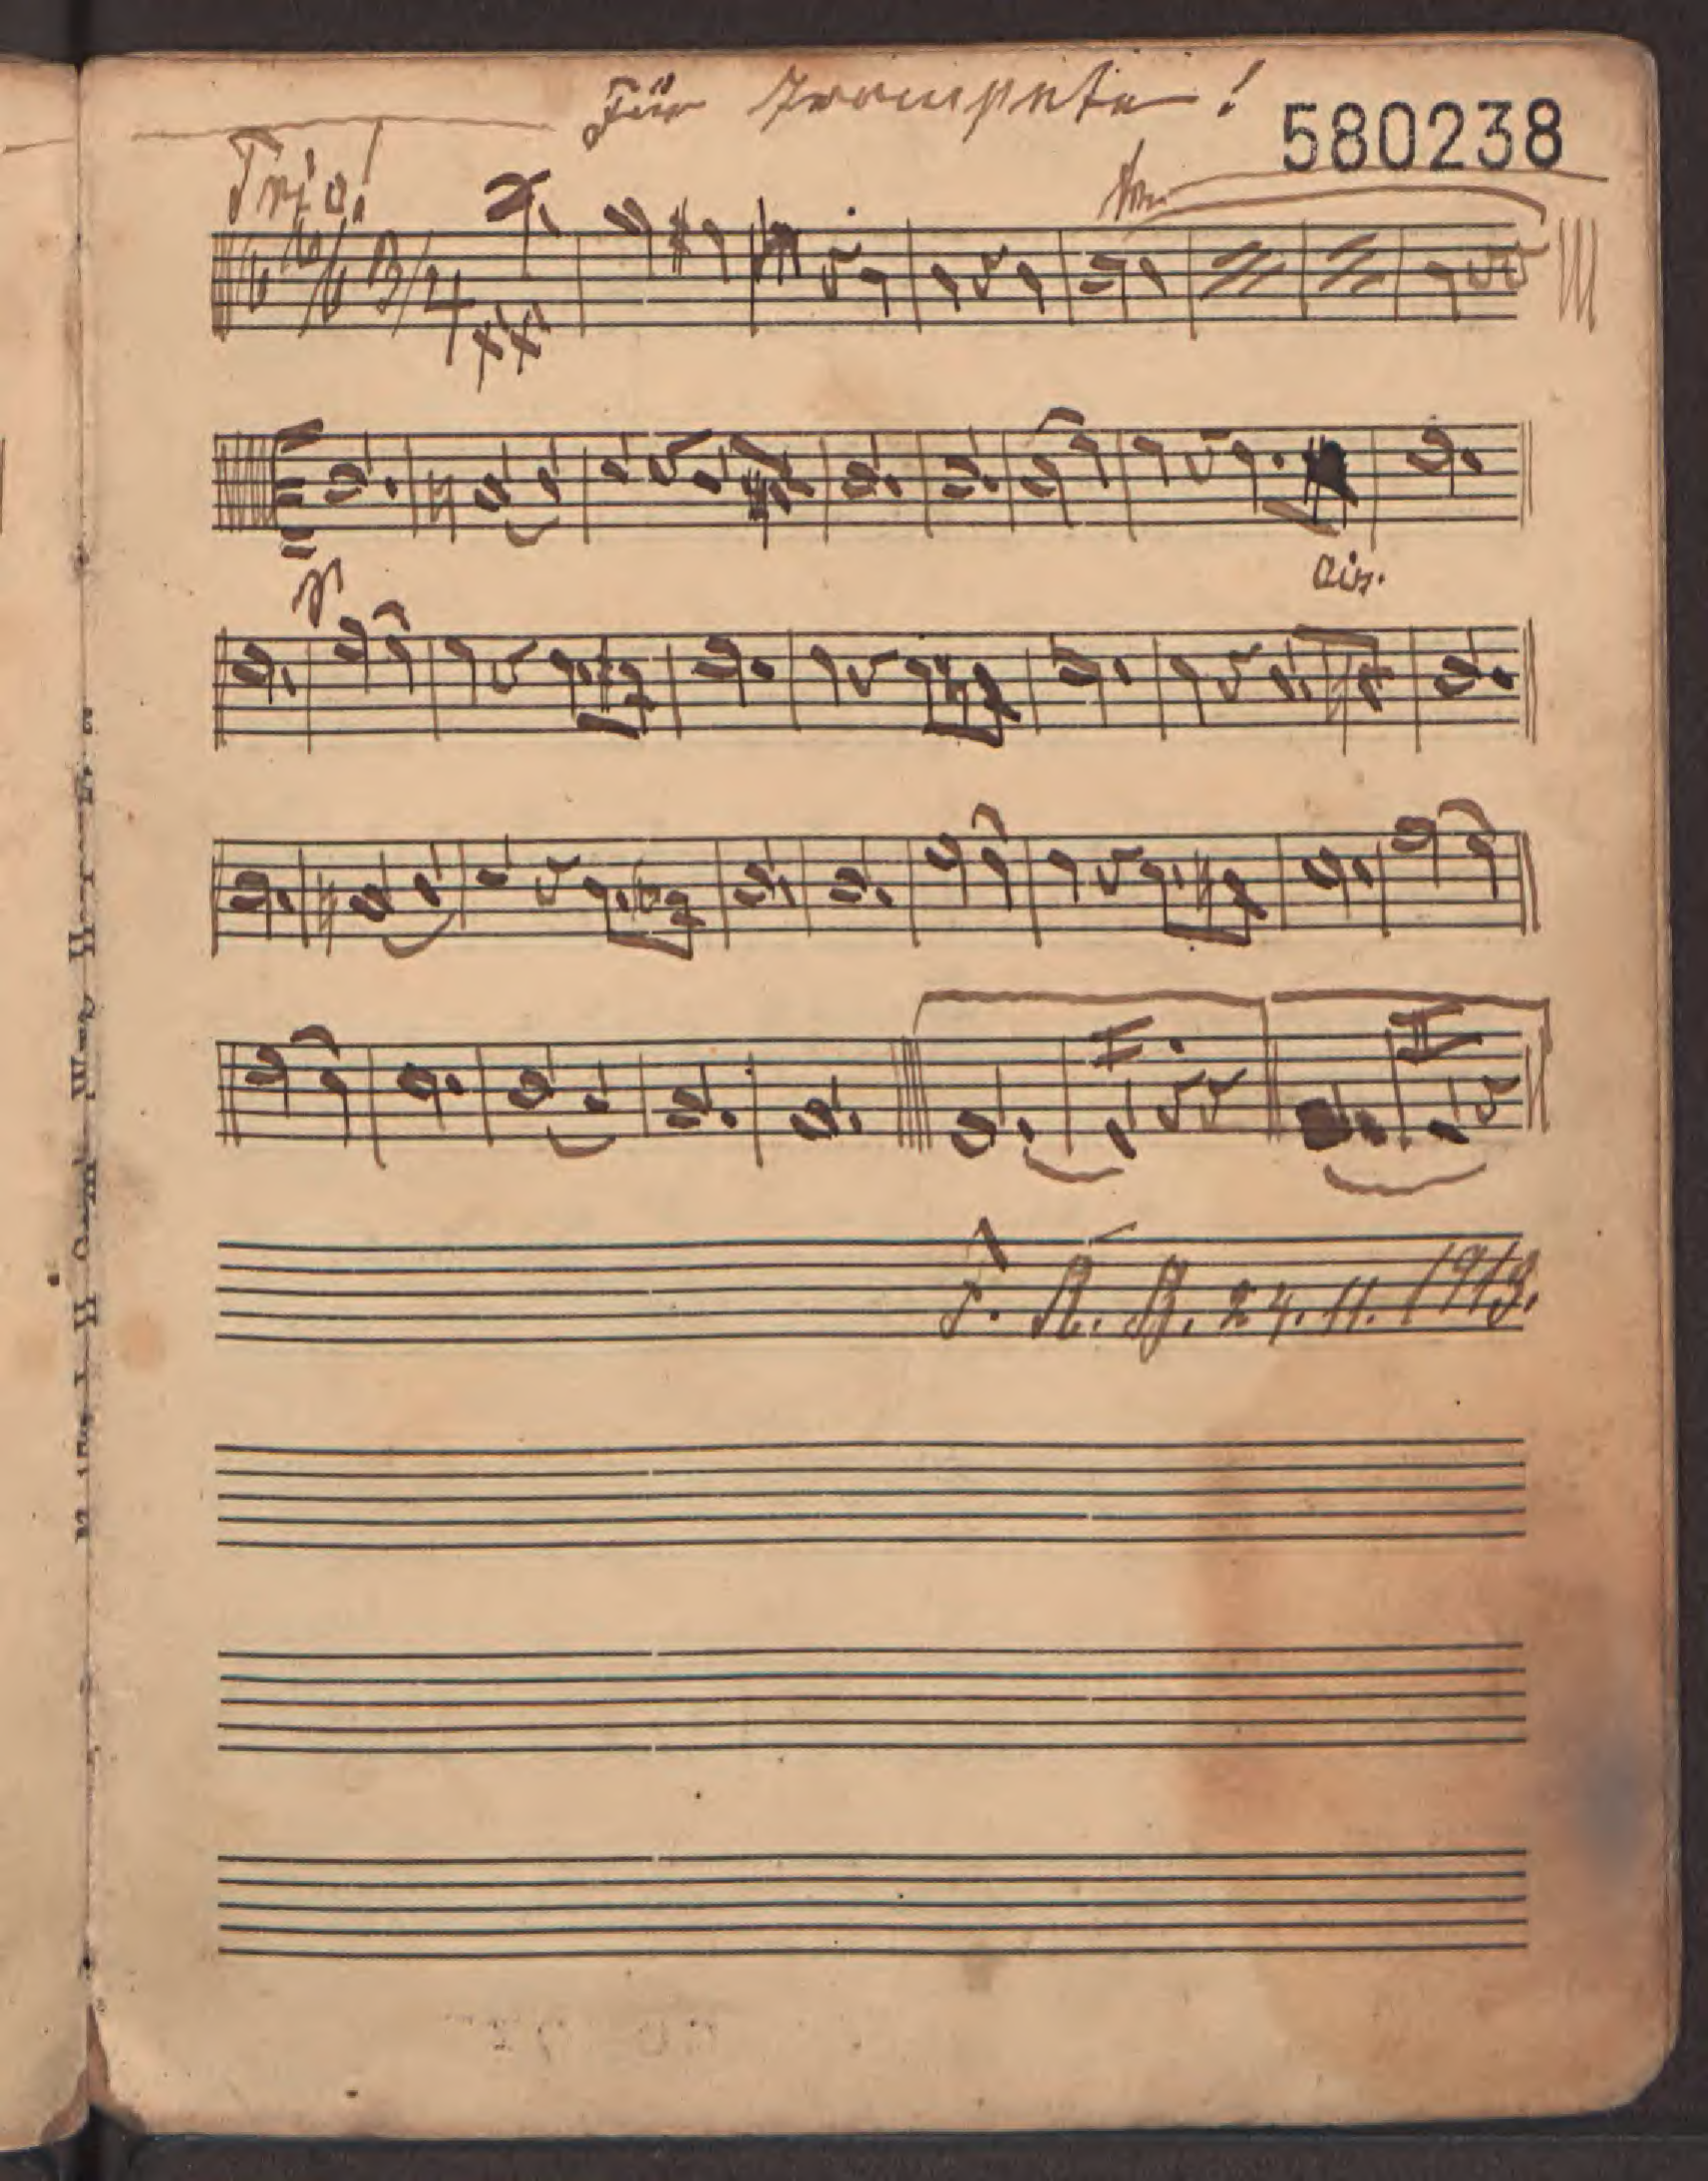 Für Trompete!
580238
Trio!
3/4
ais.
F. R. B. 24. 11. 1913.